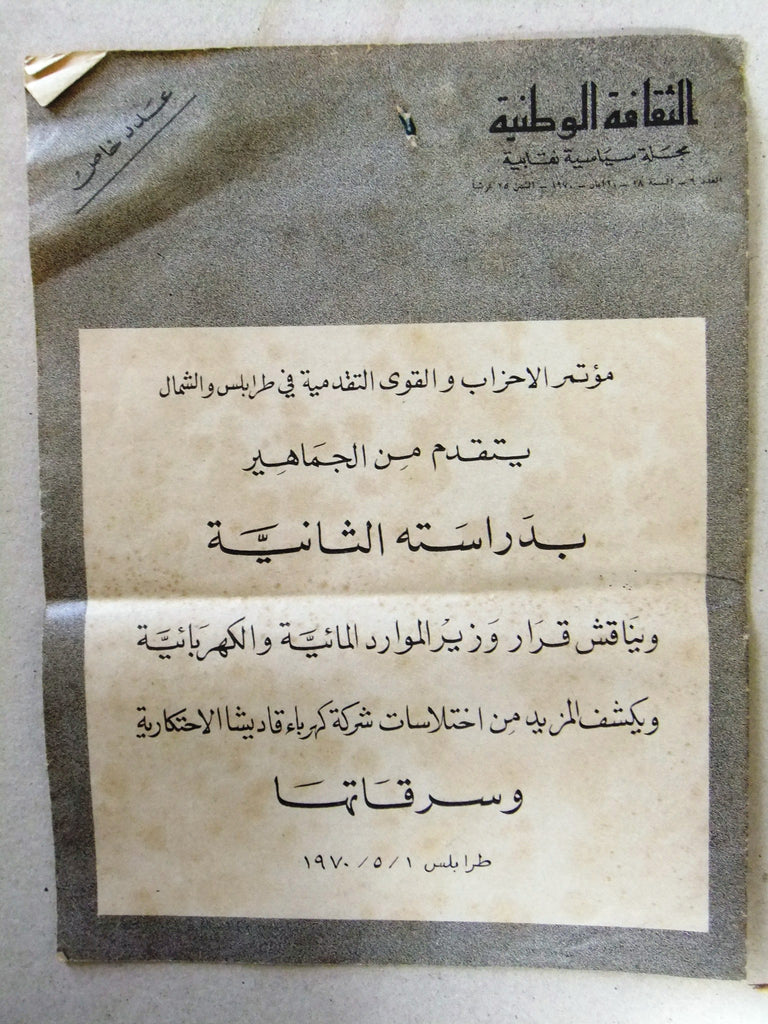 عدد خاص
الثقافة الوطنية
مجلة سياسية نقابية
العدد ٩ - السنة ١٨ - ١٩٧٠ - الثمن ٢٥ قرشا
مؤتمر الاحزاب و القوى التقدمية في طرابلس والشمال
يتقدم من الجماهير
بدراسته الثانية
ويناقش قرار وزير الموارد المائية والكهربائية
ويكشف المزيد من اختلاسات شركة كهرباء قاديشا الاحتكارية
وسرقاتها
طرابلس ١ / ٥ / ١٩٧٠